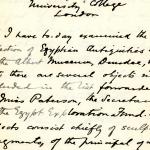 University College
London
I have to-day examined the
Collection of Egyptian Antiquities
the Albert Museum, Dundee,
there are several objects
in the list forwarded
Miss Paterson, the Secretary
the Egypt Exploration Fund
consist chiefly of
fragments, of the principal of